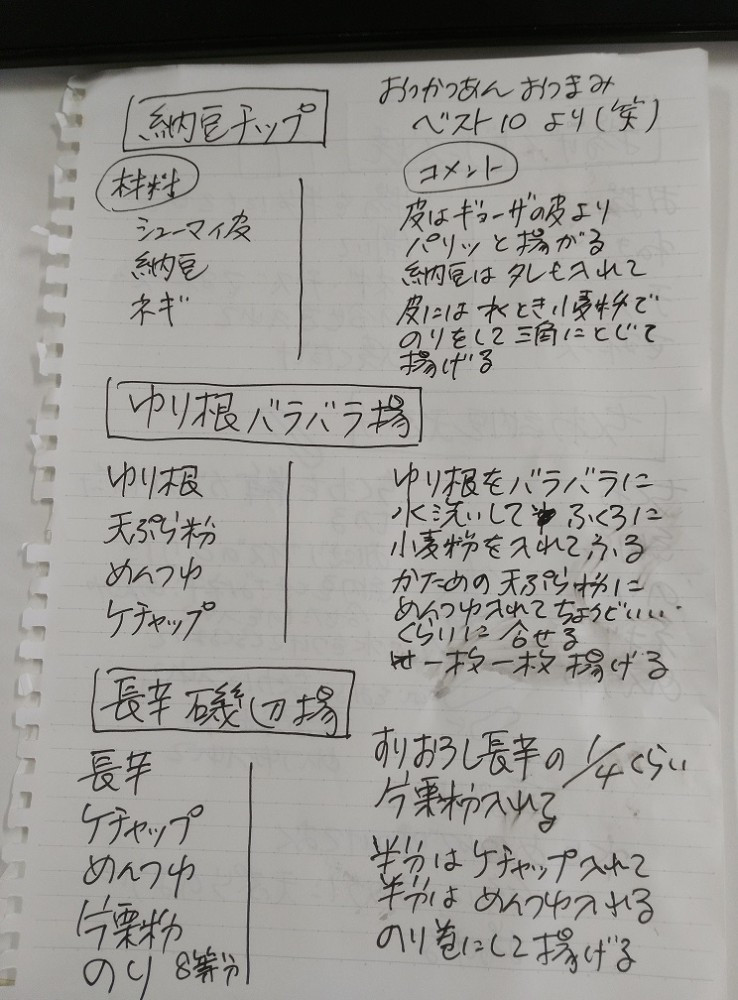 おつかつあん おつまみ
ベスト10 より(笑)
納豆チップ
材料
シューマイ皮
納豆
ネギ
コメント
皮はギョーザの皮より
パリッと揚がる
納豆は タレも入れて
皮には 水とき小麦粉で
のりをして 三角にとじて
揚げる
ゆり根バラバラ揚
ゆり根
天ぷら粉
めんつゆ
ケチャップ
ゆり根をバラバラに
水洗いして ふくろに
小麦粉を入れて ふる
かための 天ぷら粉に
めんつゆ入れて ちょうどいい
くらいに 合せる
一枚一枚 揚げる
長芋 磯辺揚
長芋
ケチャップ
めんつゆ
片栗粉
のり 8等分
すりおろし長芋の 1/4くらい
片栗粉入れる
半分は ケチャップ入れて
半分は めんつゆ入れる
のり巻にして 揚げる